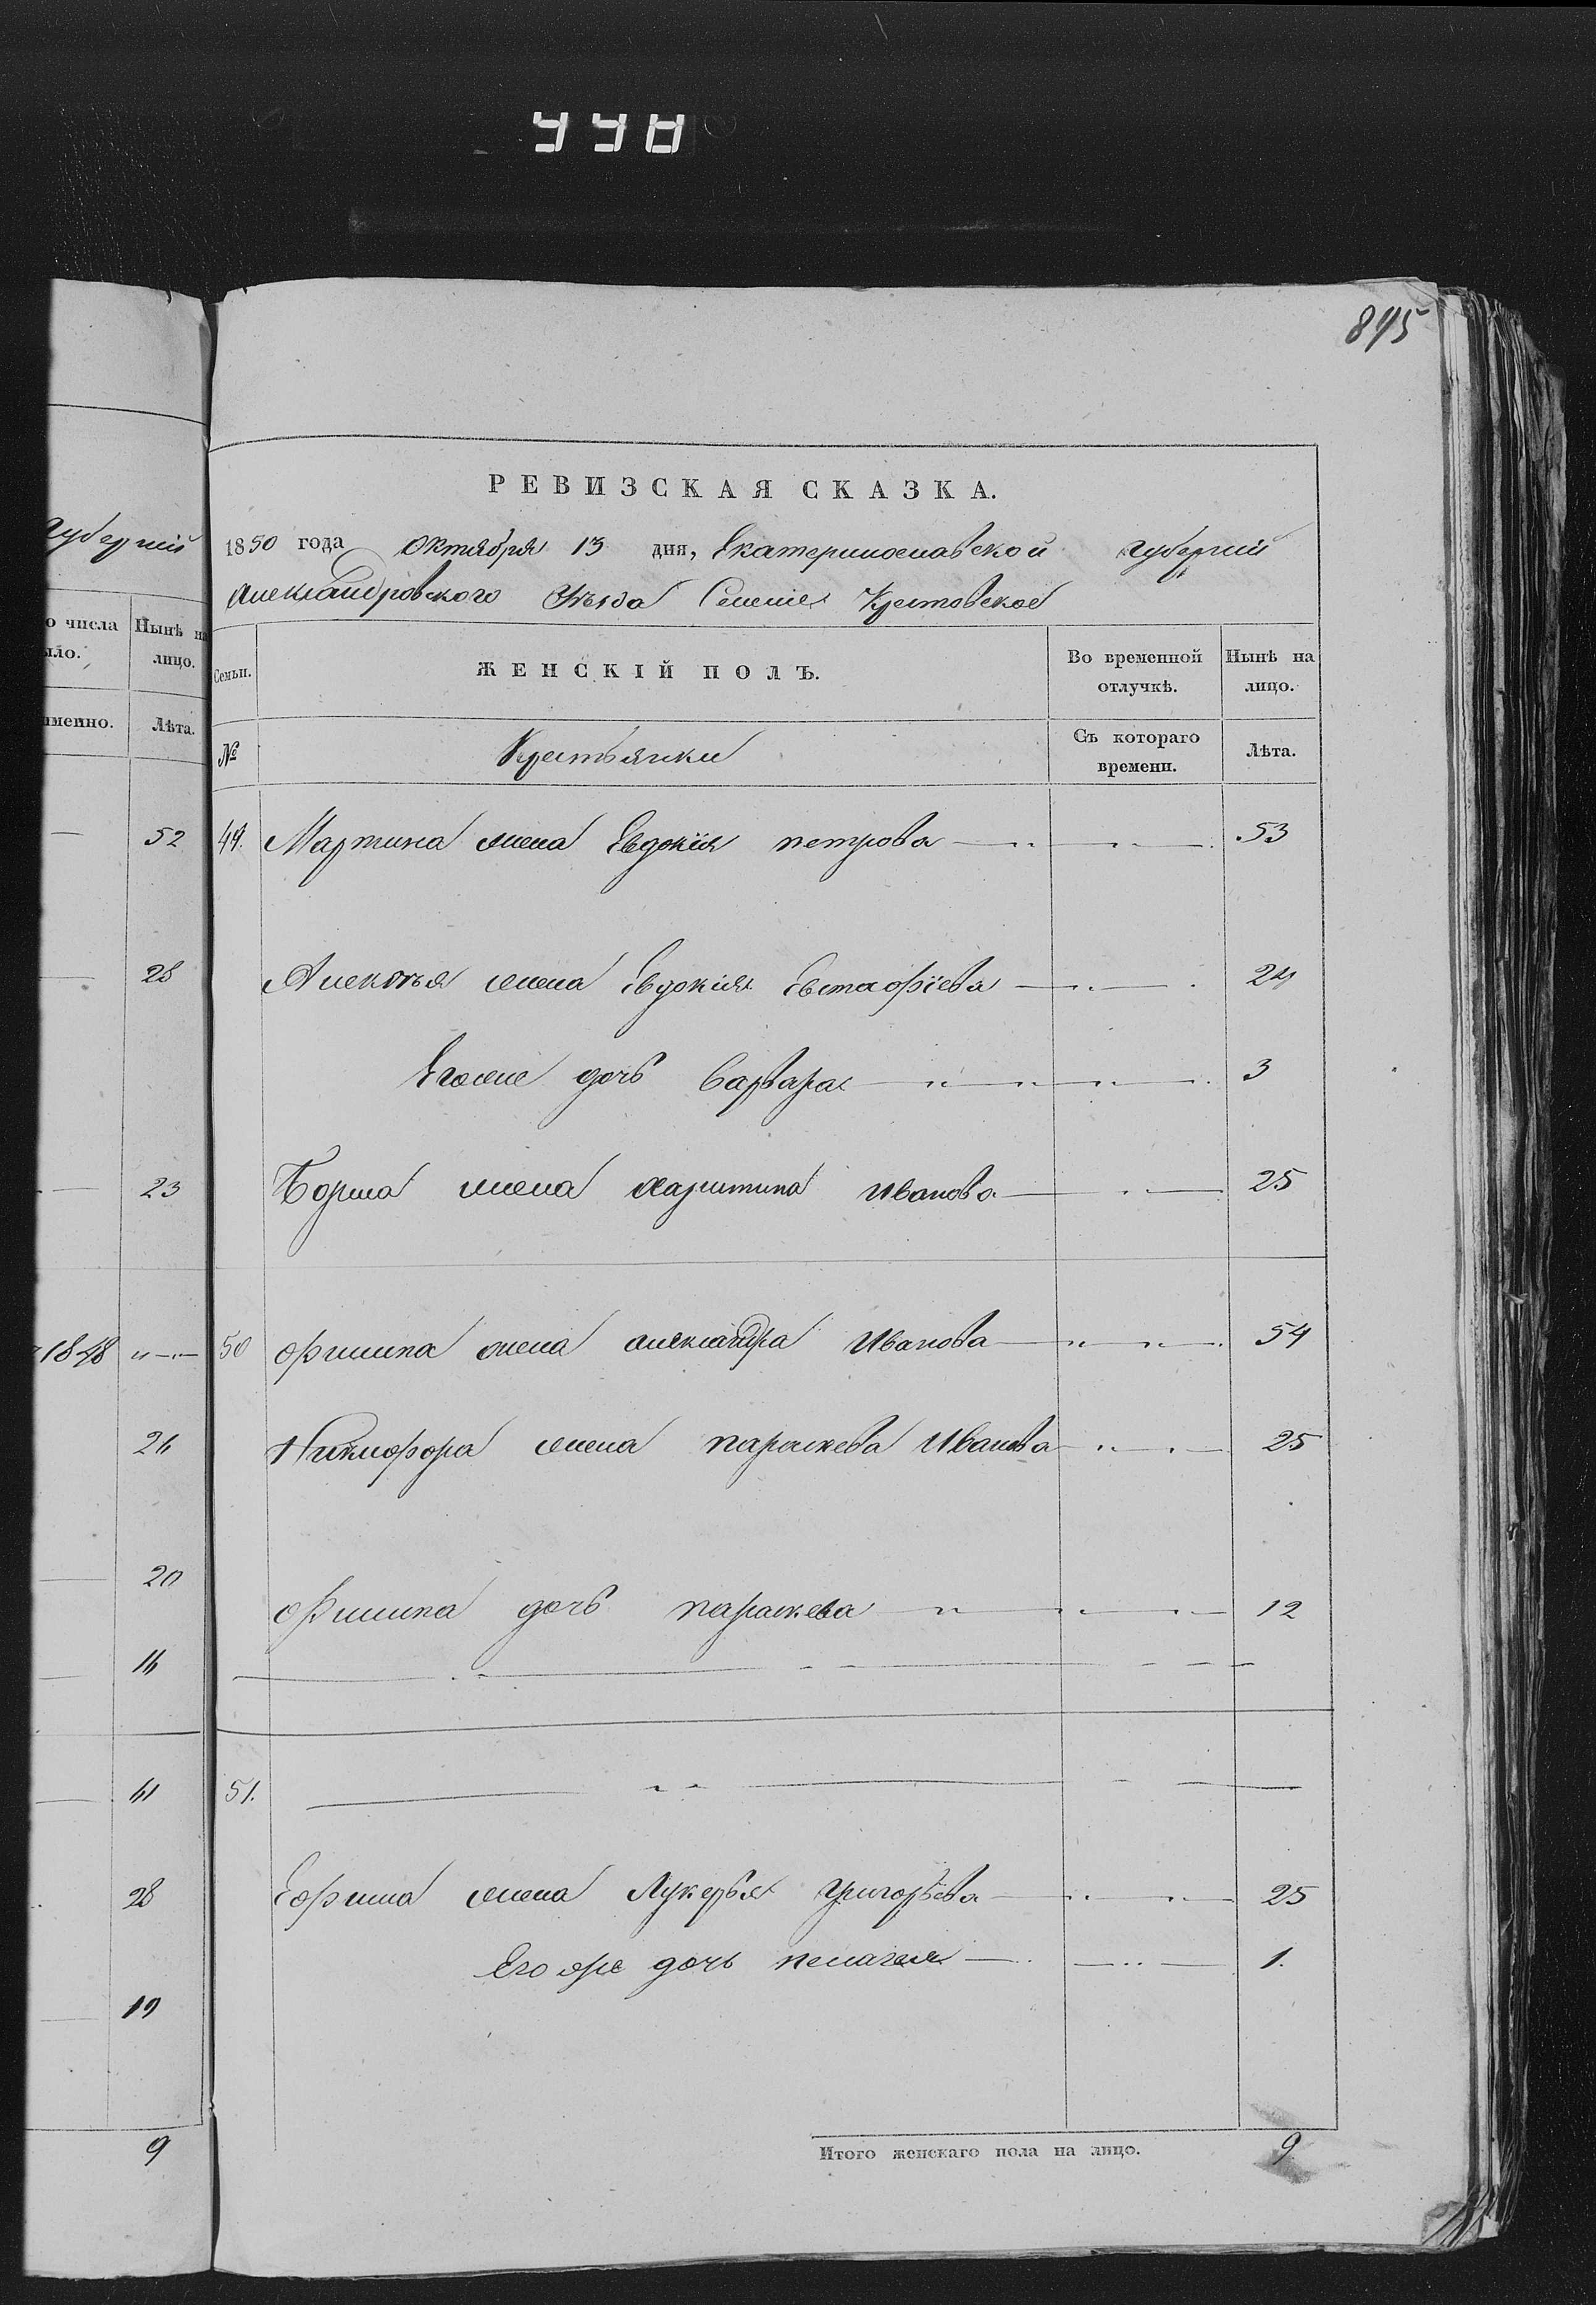 845
губерніи
РЕВИЗСКАЯ СКАЗКА.
1850 года октября 13 дня, Екатеринославской губерніи
Александровского Уѣзда Селеніе Крестовское
о числа
ыло.
Нынѣ на
лицо.
именно.
Лѣта.
Семьи.
ЖЕНСКІЙ ПОЛЪ.
Во временной
отлучкѣ.
Нынѣ на
лицо.
№
Крестьянки
Съ котораго
времени.
Лѣта.
52
49. Мартина жена Евдокія петрова 53
28
Алексѣя жена Евдокія Евстафіева 24
Егоже дочь Варвара 3
23
жена харитина иванова 25
1848
50 филипа жена александра Иванова 54
26
Никифора жена параскева Иванова 25
20
филипа дочь параскева 12
16
41
51.
28
Ефима жена Лукерья григорьева 25
Его же дочь пелагея 1.
19
9
Итого женскаго пола на лицо. 9